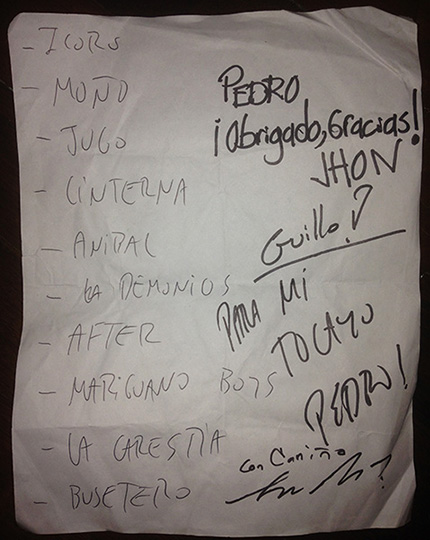 - ICORS
- MOÑO
- JUGO
- LINTERNA
- ANIBAL
- LA DEMONIOS
- AFTER
- MARIGUANO BOYS
- LA CARESTÍA
- BUSETERO
PEDRO
¡Obrigado, Gracias!
JHON
Guillo
PARA MI
TOCAYO
PEDRO!
con Cariño